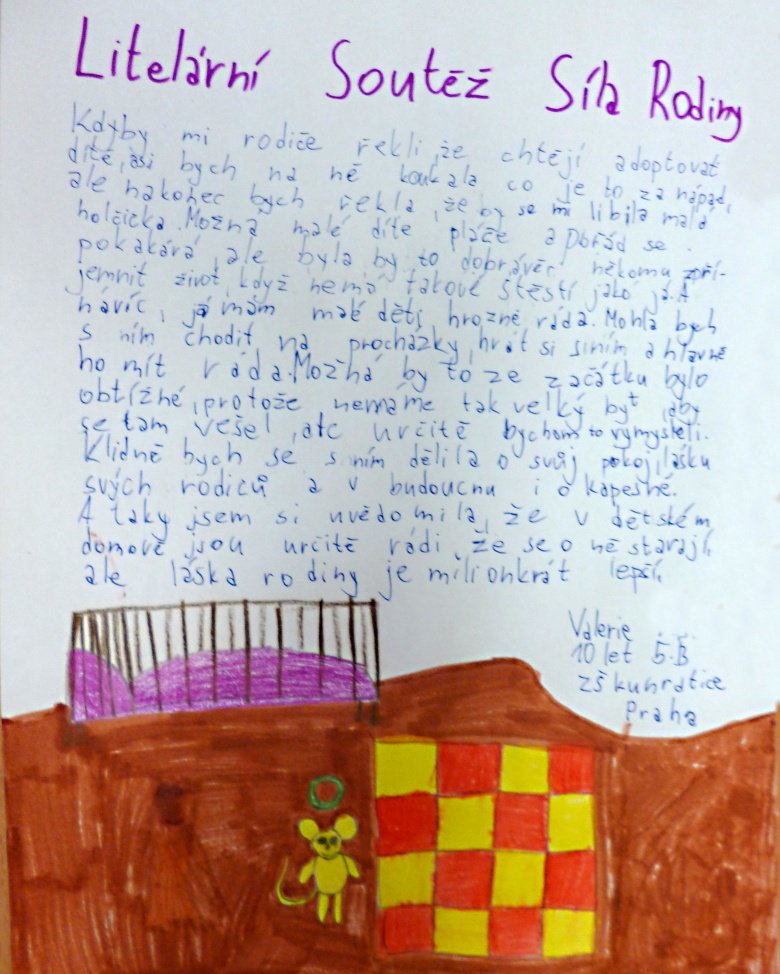 Litelární Soutěž Síla Rodiny
Kdyby mi rodiče řekli, že chtějí adoptovat
dítě, asi bych na ně koukala co je to za nápad,
ale nakonec bych řekla, že by se mi líbila malá
holčička. Možná malé dítě pláče a pořád se
pokakává, ale byla by to dobrá věc někomu zpří-
jemnit život, když nemá takové štěstí jako já. A
navíc, já mám malé děti hrozně ráda. Mohla bych
s ním chodit na procházky, hrát si sním a hlavně
ho mít ráda. Možná by to ze začátku bylo
obtížné, protože nemáme tak velký byt, aby
se tam vešel, ale určitě bychom to vymysleli.
Klidně bych se s ním dělila o svůj pokoj, lásku
svých rodičů a v budoucnu i o kapesné.
A taky jsem si uvědomila, že v dětském
domově jsou určitě rádi, že se o ně starají,
ale láska rodiny je milionkrát lepší.
Valerie
10 let 5.B
ZŠ kunratice
Praha